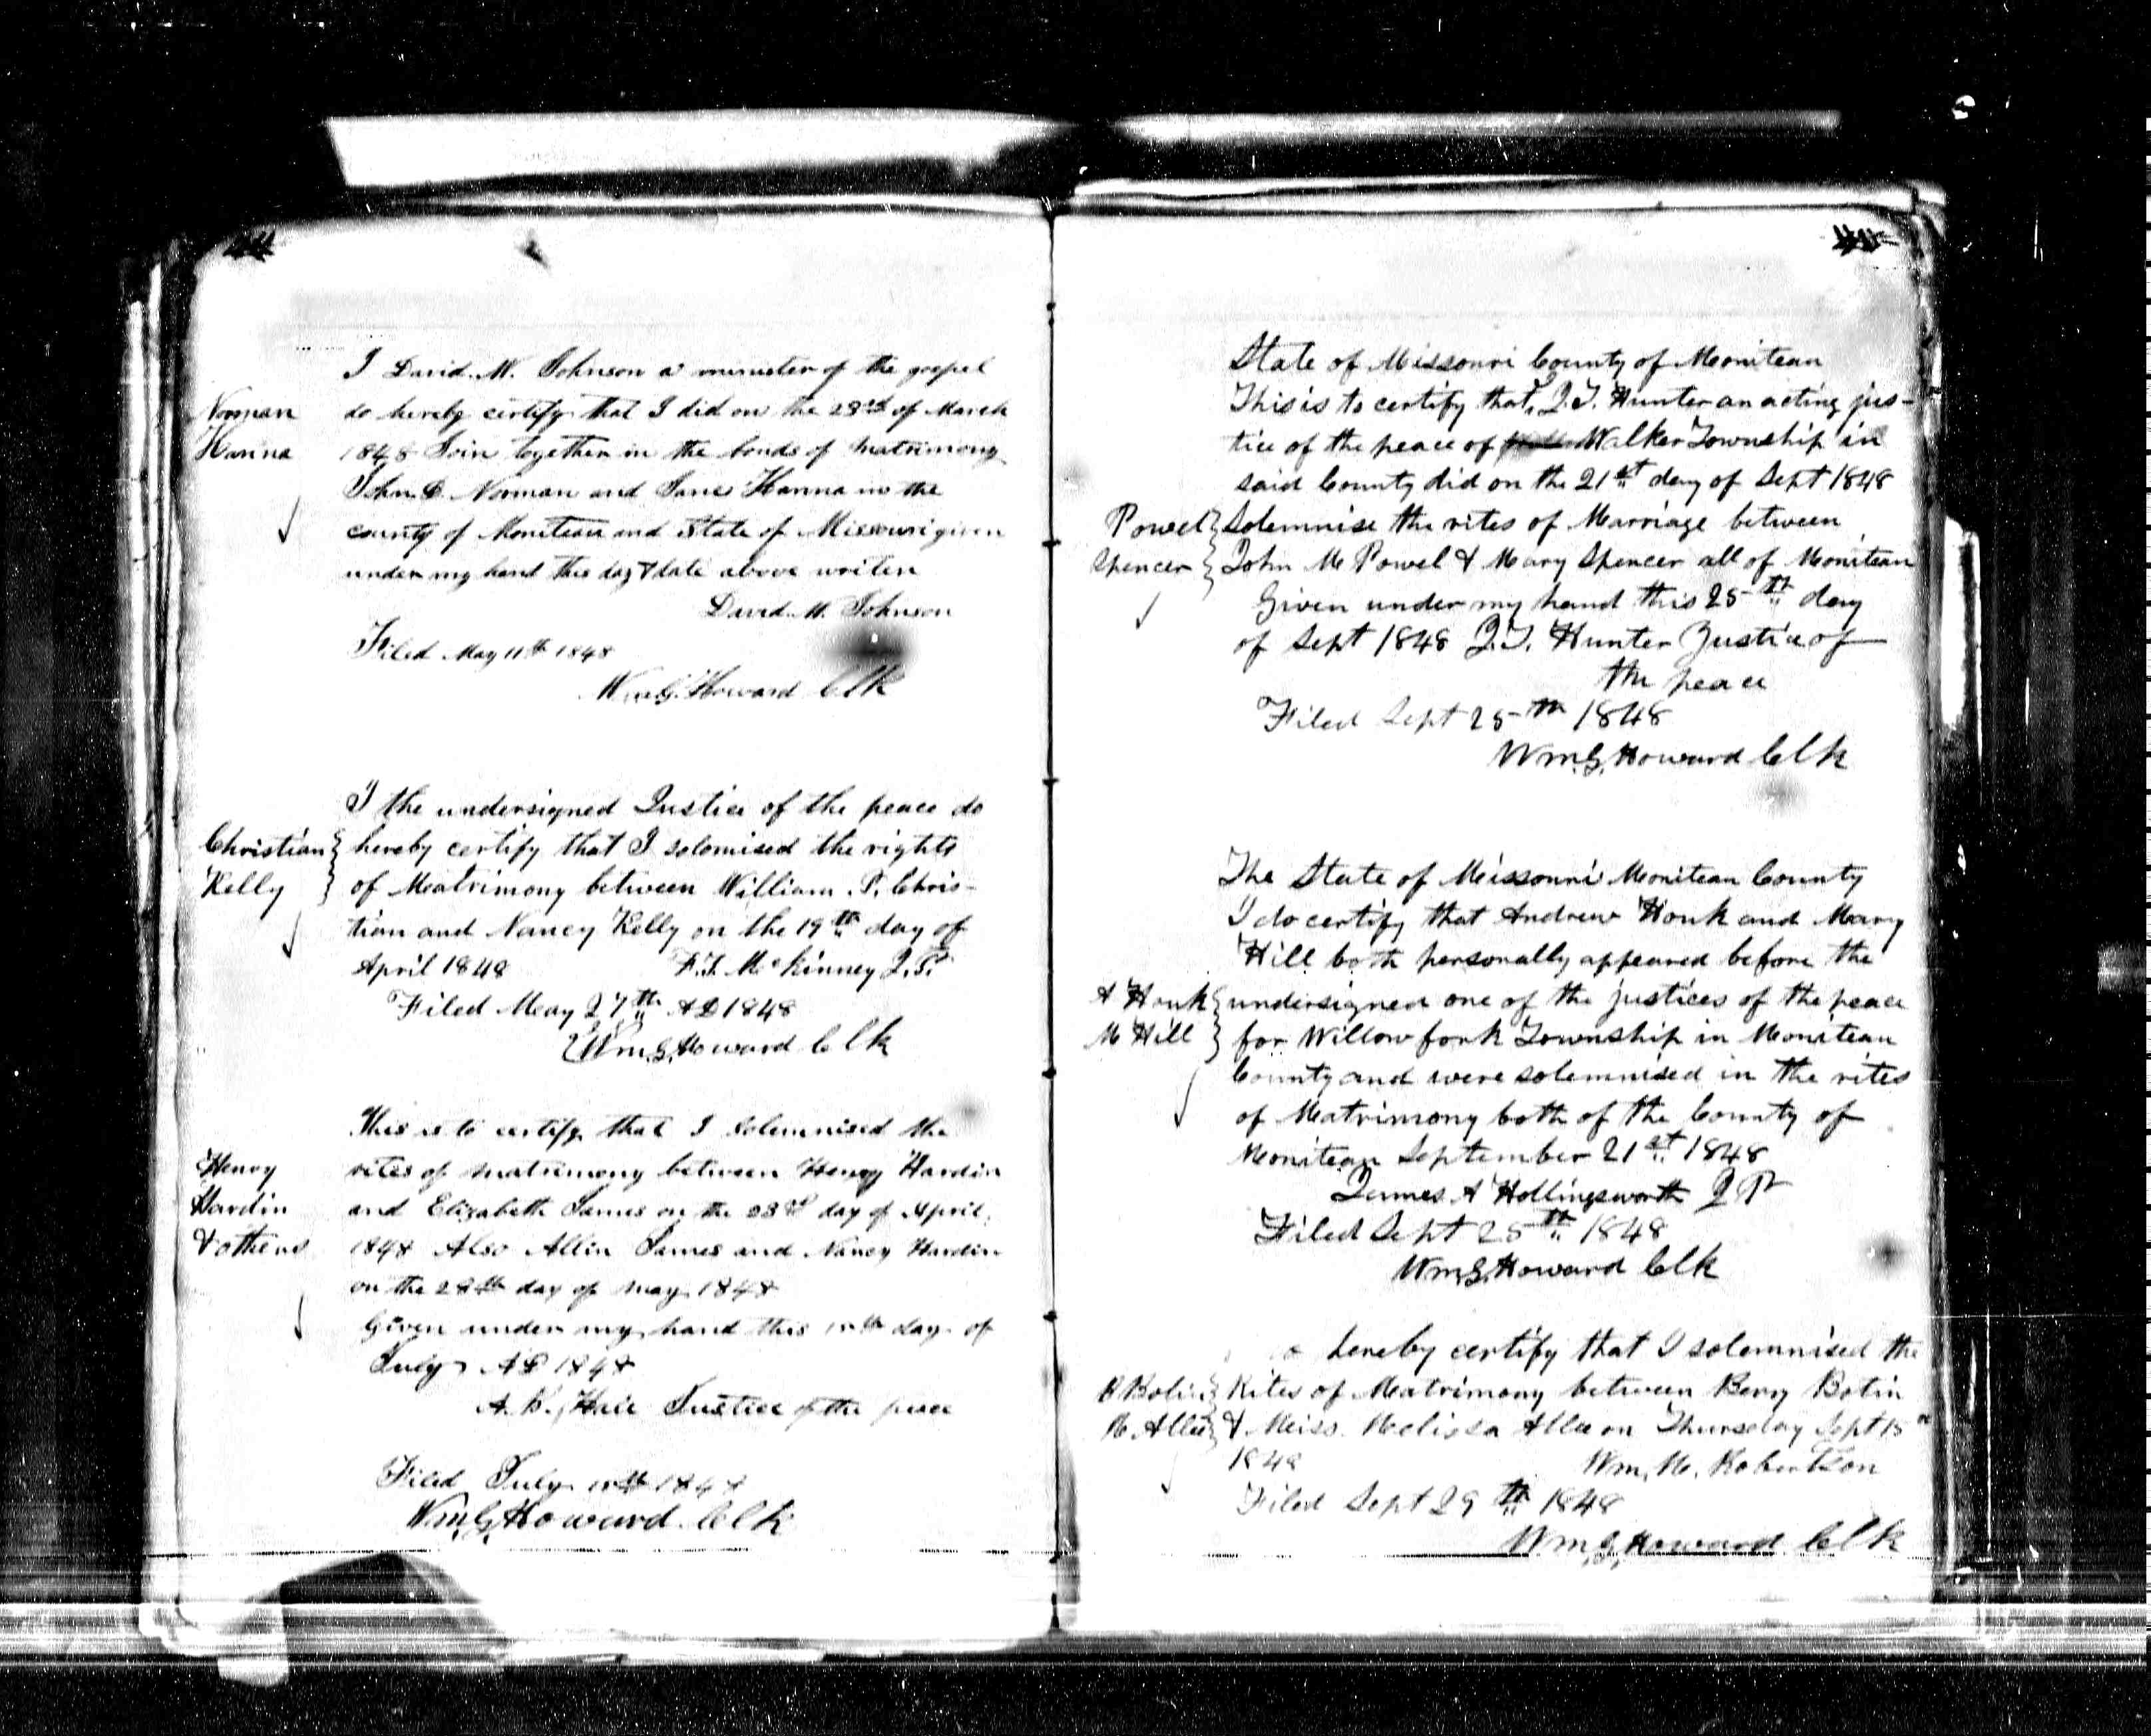 44
I David. M. Johnson a minister of the gospel
Norman do hereby certify that I did on the 23rd of March
Hanna 1848 Join together in the bonds of matrimony
John Norman and Jane Hanna in the
county of Moniteau and State of Missouri given
under my hand this day & date above writen
David. M. Johnson
Filed May 11th 1848
Wm.G. Howard Clk
I the undersigned Justice of the peace do
Christian } hereby certify that I solomised the rights
Kelly } of Matrimony between William. P. Chris-
tian and Nancy Kelly on the 19th day of
April 1848 McKinney J.P.
Filed May 27th AD 1848
Wm.G. Howard Clk
This is to certify that I solemnised the
Henry rites of matrimony between Henry Hardin
Hardin and Elizabeth James on the 23rd day of April
& others 1848 Also Allin James and Nancy Hardin
on the 28th day of May 1848
Given under my hand this day of
July AD 1848
A. K. Hair Justice of the peace
Filed July 1848
Wm.G. Howard. Clk
State of Missouri County of Monitean
This is to certify that, I J.T. Hunter an acting jus-
tice of the peace of Walker Township in
said County did on the 21st day of Sept 1848
Powel } Solemnise the rites of Marriage between
Spencer } John M Powel & Mary Spencer all of Monitean
Given under my hand this 25th day
of Sept 1848 J.T. Hunter Justice of
the peace
Filed Sept 25th 1848
Wm.G. Howard Clk
The State of Missouri Monitean County
I do certify that Andrew Houk and Mary
Hill both personally appeared before the
A Houk } undersigned one of the justices of the peace
M Hill } for Willow fork Township in Monitean
County and were solemnised in the rites
of Matrimony both of the County of
Monitean September 21st 1848
James A Hollingsworth J P
Filed Sept 25th 1848
Wm.G. Howard Clk
hereby certify that I solemnised the
B Bolin } Rites of Matrimony between Berry Bolin
M Allee } & Miss. Melissa Allee on Thursday Sept 15
1848 Wm, M. Robertson
Filed Sept 29th 1848
Wm.G. Howard. Clk